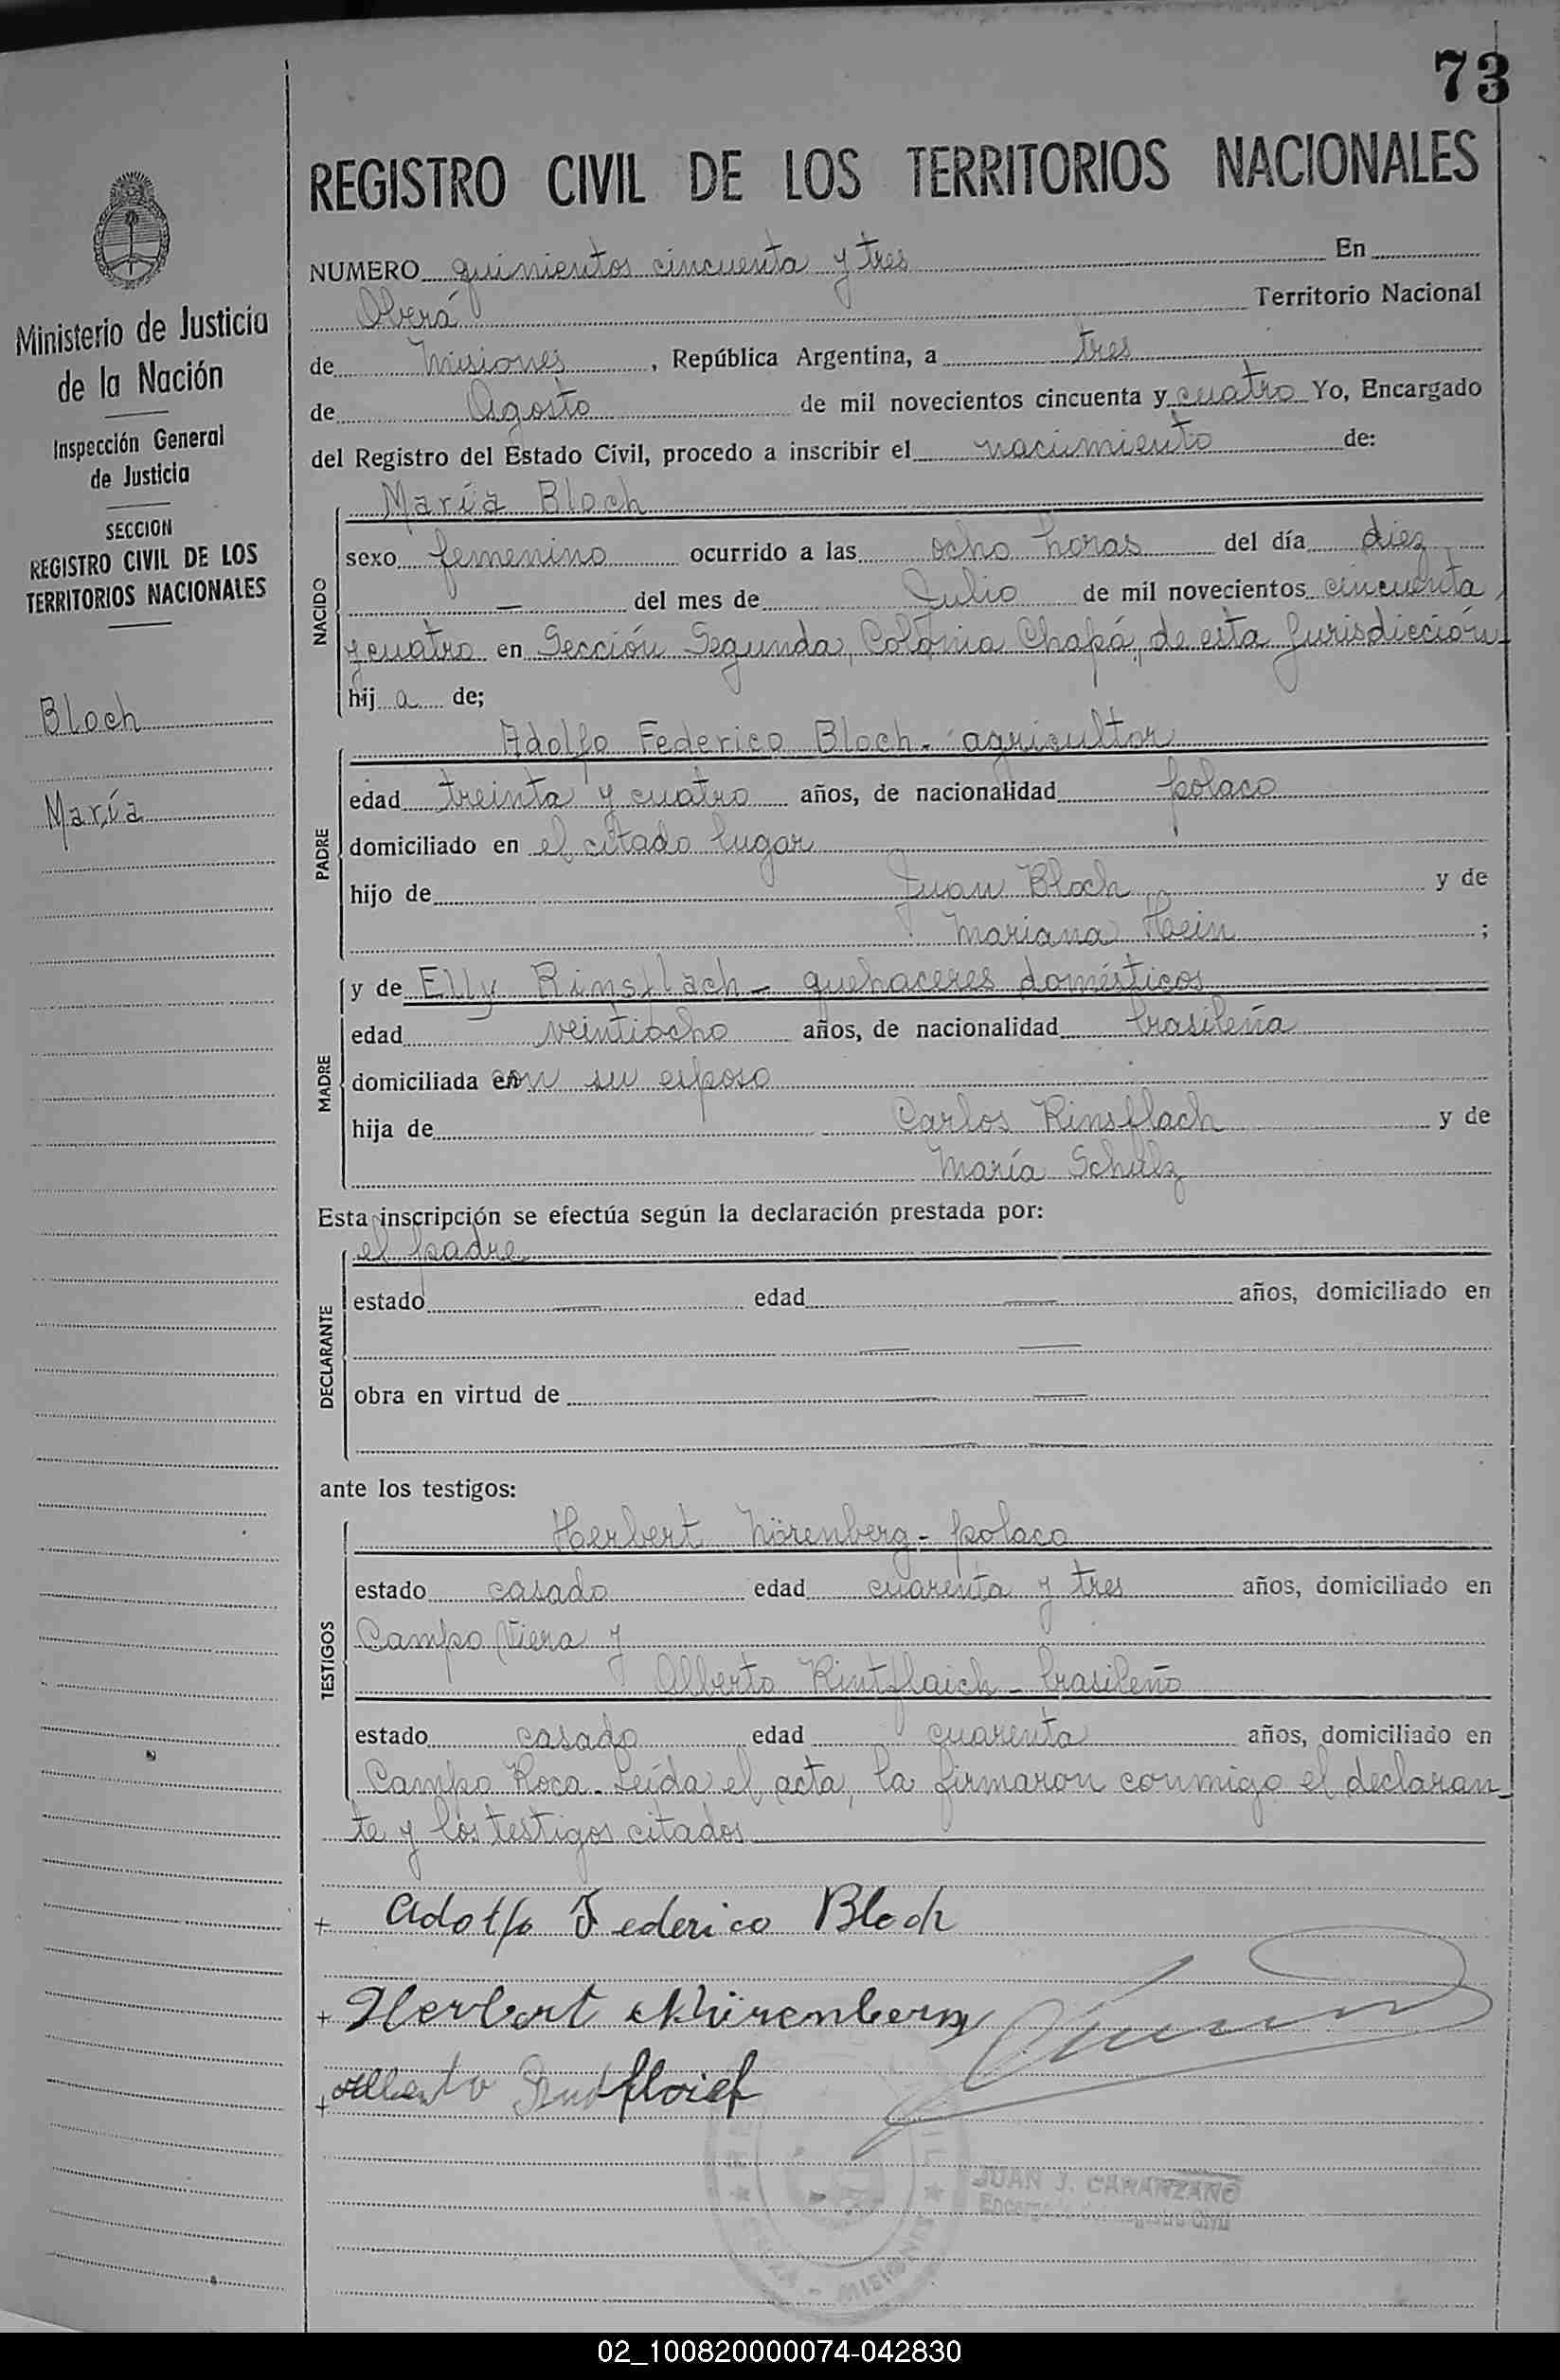 73
REGISTRO CIVIL DE LOS TERRITORIOS NACIONALES
NUMERO quinientos cincuenta y tres En
Oberá Territorio Nacional
de Misiones, República Argentina, a tres
de Agosto de mil novecientos cincuenta y cuatro Yo, Encargado
del Registro del Estado Civil, procedo a inscribir el nacimiento de:
Ministerio de Justicia
de la Nación
Inspección General
de Justicia
SECCION
REGISTRO CIVIL DE LOS
TERRITORIOS NACIONALES
Bloch
María
NACIDO
María Bloch
sexo femenino ocurrido a las ocho horas del día diez
— del mes de Julio de mil novecientos cincuenta
y cuatro en Sección Segunda, Colonia Chapá, de esta Jurisdicción-
hij a de;
PADRE
Adolfo Federico Bloch - agricultor
edad treinta y cuatro años, de nacionalidad polaco
domiciliado en el citado lugar
hijo de Juan Bloch y de
Mariana Hein ;
MADRE
y de Elly Rinsflach - quehaceres domésticos
edad veintiocho años, de nacionalidad brasileña
domiciliada con su esposo
hija de Carlos Rinsflach y de
María Schulz
Esta inscripción se efectúa según la declaración prestada por:
DECLARANTE
el padre
estado — edad — años, domiciliado en
— —
obra en virtud de — —
— —
ante los testigos:
TESTIGOS
Herbert Nörenberg - polaco
estado casado edad cuarenta y tres años, domiciliado en
Campo Viera y
Alberto Rintflaich - brasileño
estado casado edad cuarenta años, domiciliado en
Campo Roca. Leída el acta, la firmaron conmigo el declaran-
te y los testigos citados
+ Adolfo Federico Bloch
+ Herbert Nürenberg
+ Alberto
JUAN J. CANANZANO
Encargado del Registro Civil
02_100820000074-042830